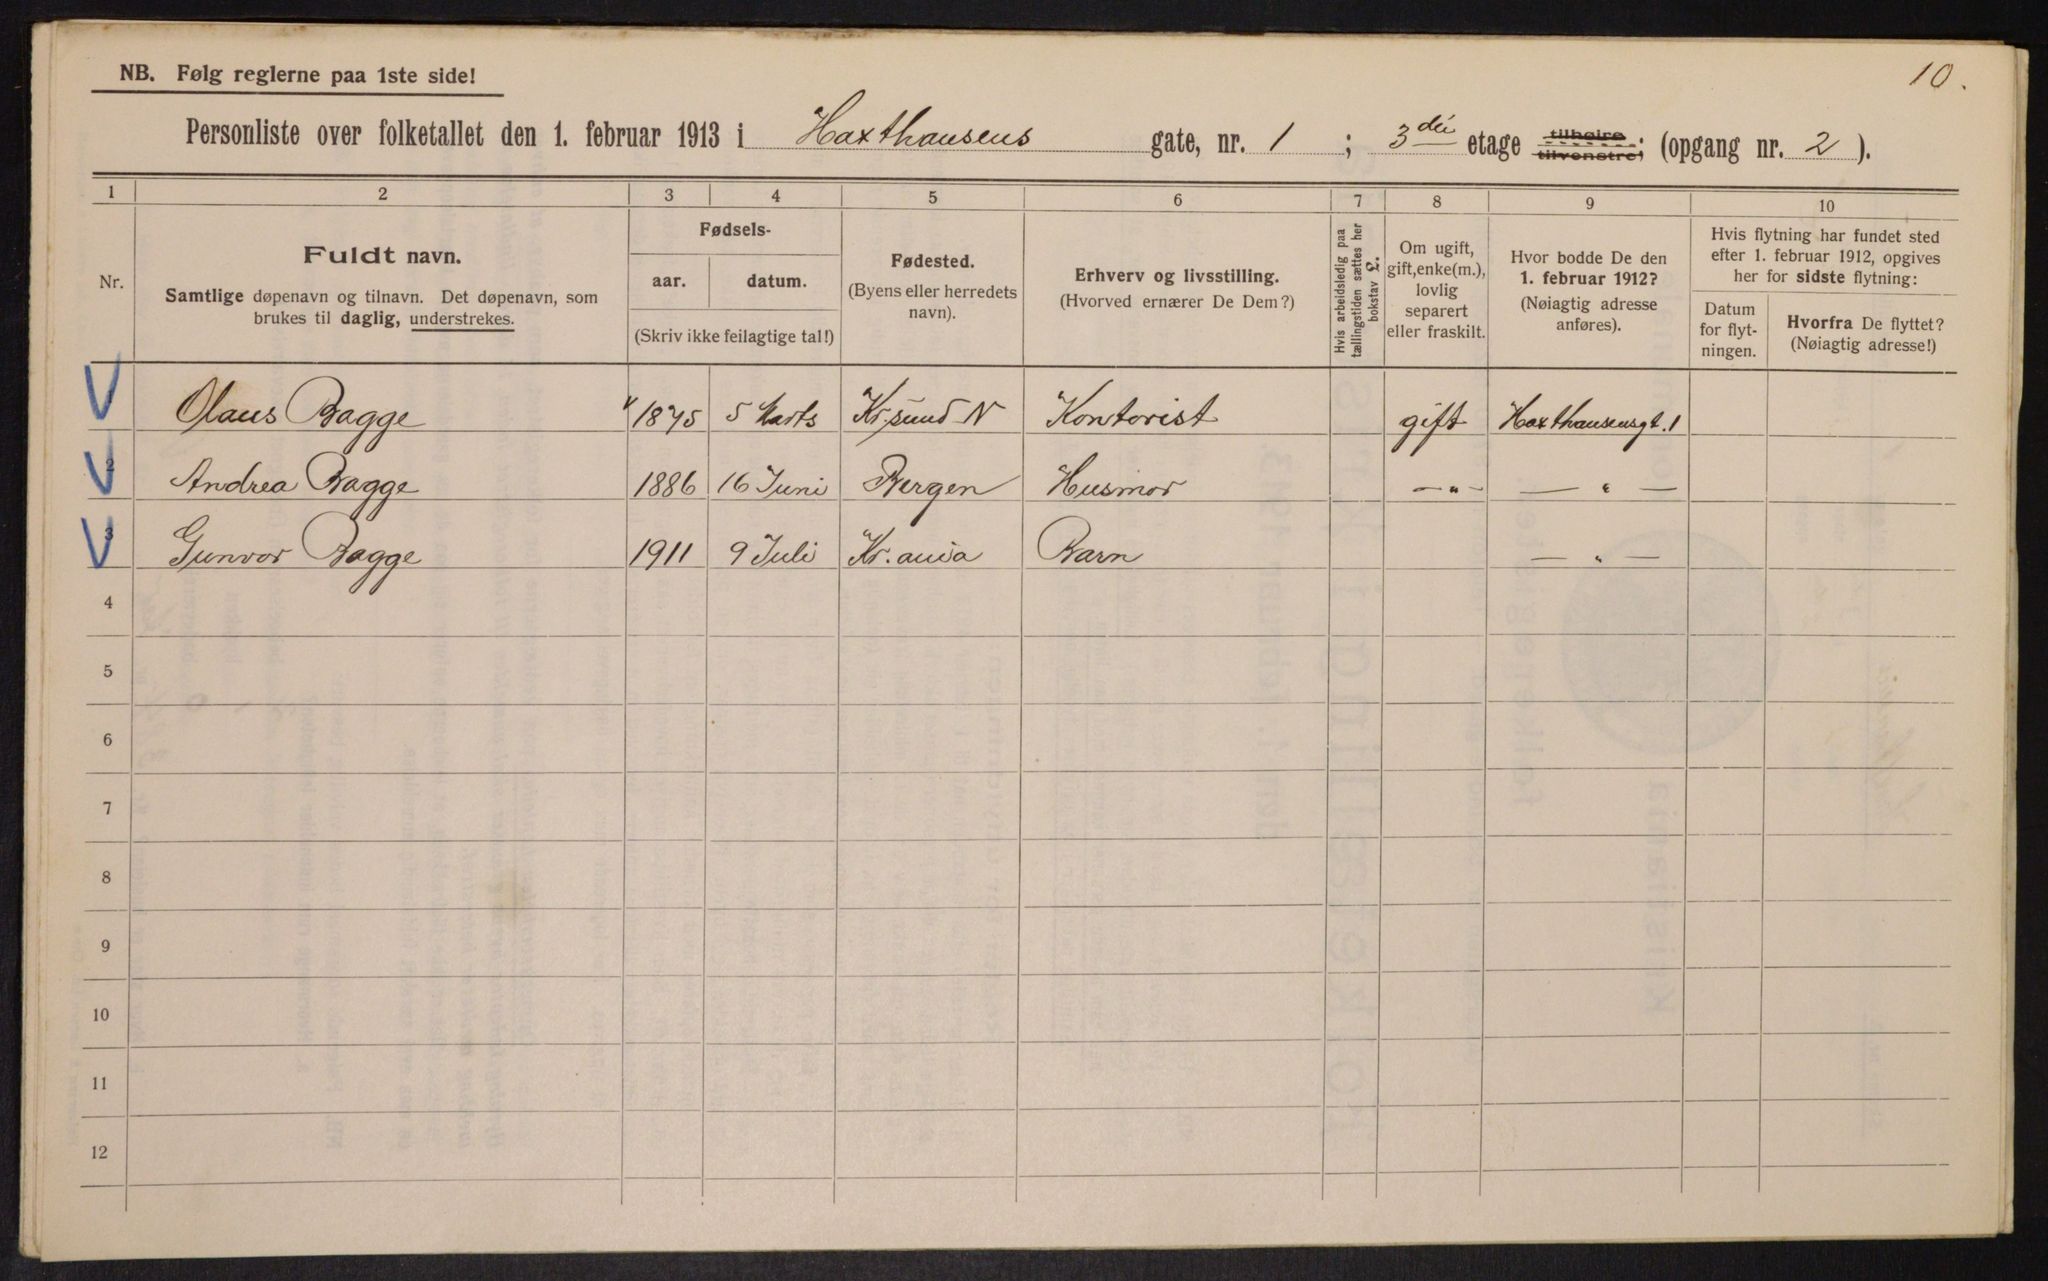 10.
NB. Følg reglerne paa 1ste side!
Personliste over folketallet den 1. februar 1913 i Haxthausens gate, nr. 1 ; 3die etage tilhøire tilvenstre; (opgang nr. 2 ).
1 2 3 4 5 6 7 8 9 10
Nr.
Fuldt navn.
Samtlige døpenavn og tilnavn. Det døpenavn, som
brukes til daglig, understrekes.
Fødsels-
aar. datum.
(Skriv ikke feilagtige tal!)
Fødested.
(Byens eller herredets
navn).
Erhverv og livsstilling.
(Hvorved ernærer De Dem?)
Hvis arbeidsledig paa
tællingstiden sættes her
bokstav L.
Om ugift,
gift, enke(m.),
lovlig
separert
eller fraskilt.
Hvor bodde De den
1. februar 1912?
(Nøiagtig adresse
anføres).
Hvis flytning har fundet sted
efter 1. februar 1912, opgives
her for sidste flytning:
Datum
for flyt-
ningen.
Hvorfra De flyttet?
(Nøiagtig adresse!)
Olaus Bagge 1875 5 Marts Kr.sund N Kontorist gift Haxthausensgt. 1
2 Andrea Bagge 1886 16 Juni Bergen Husmor — " — — " —
3 Gunvor Bagge 1911 9 Juli Kr.ania Barn — " —
4
5
6
7
8
9
10
11
12